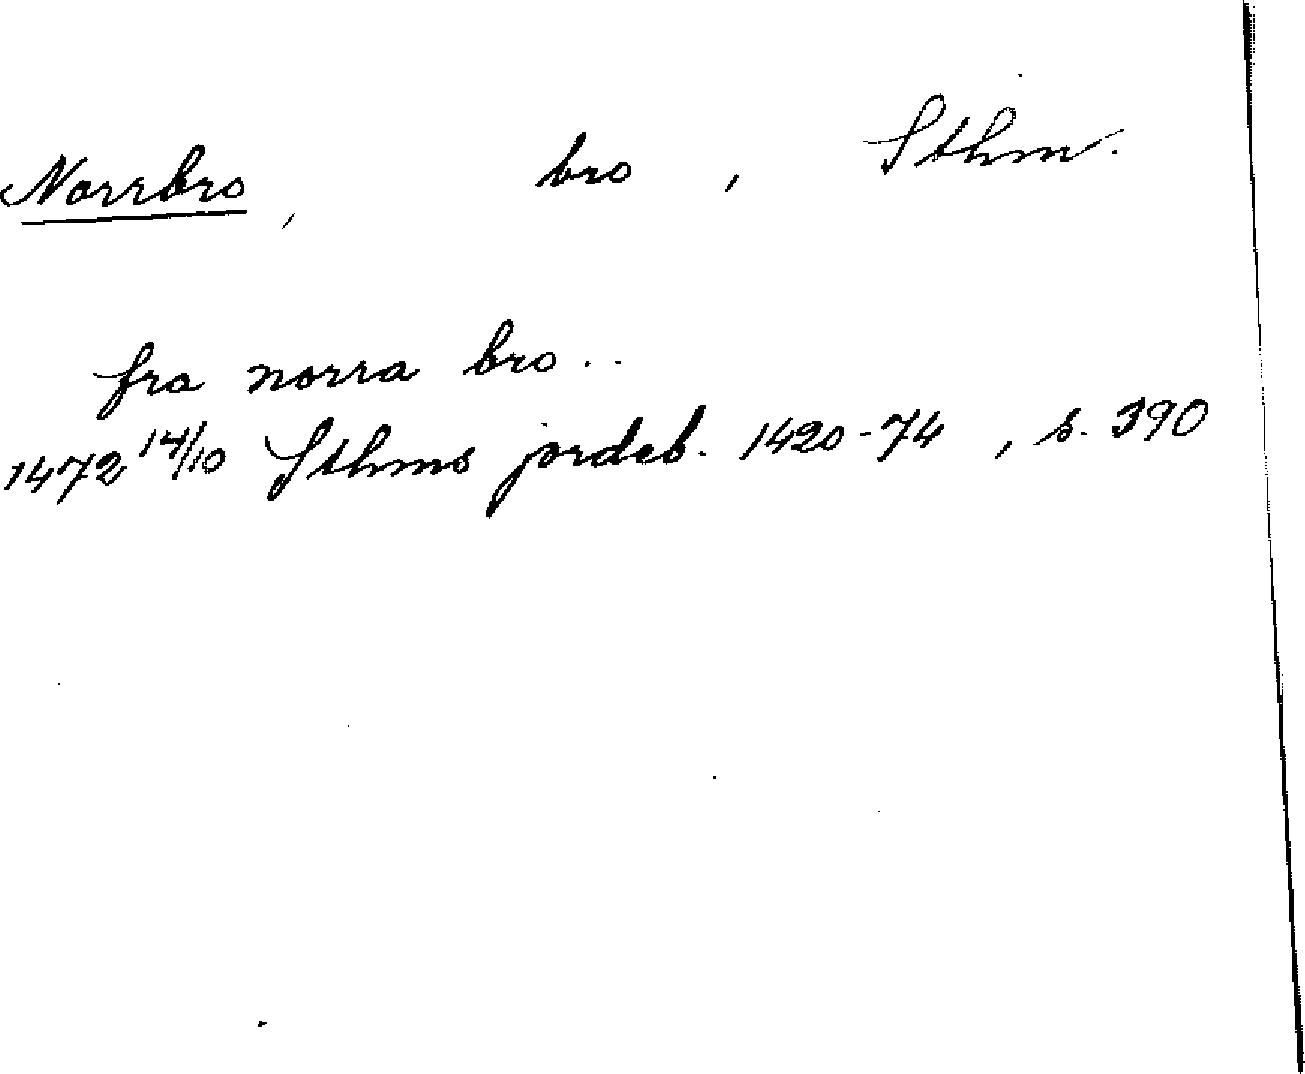 Norrbro, bro, Sthm.
fra norra bro..
1472 14/10 Sthms jordeb. 1420-74, s. 390